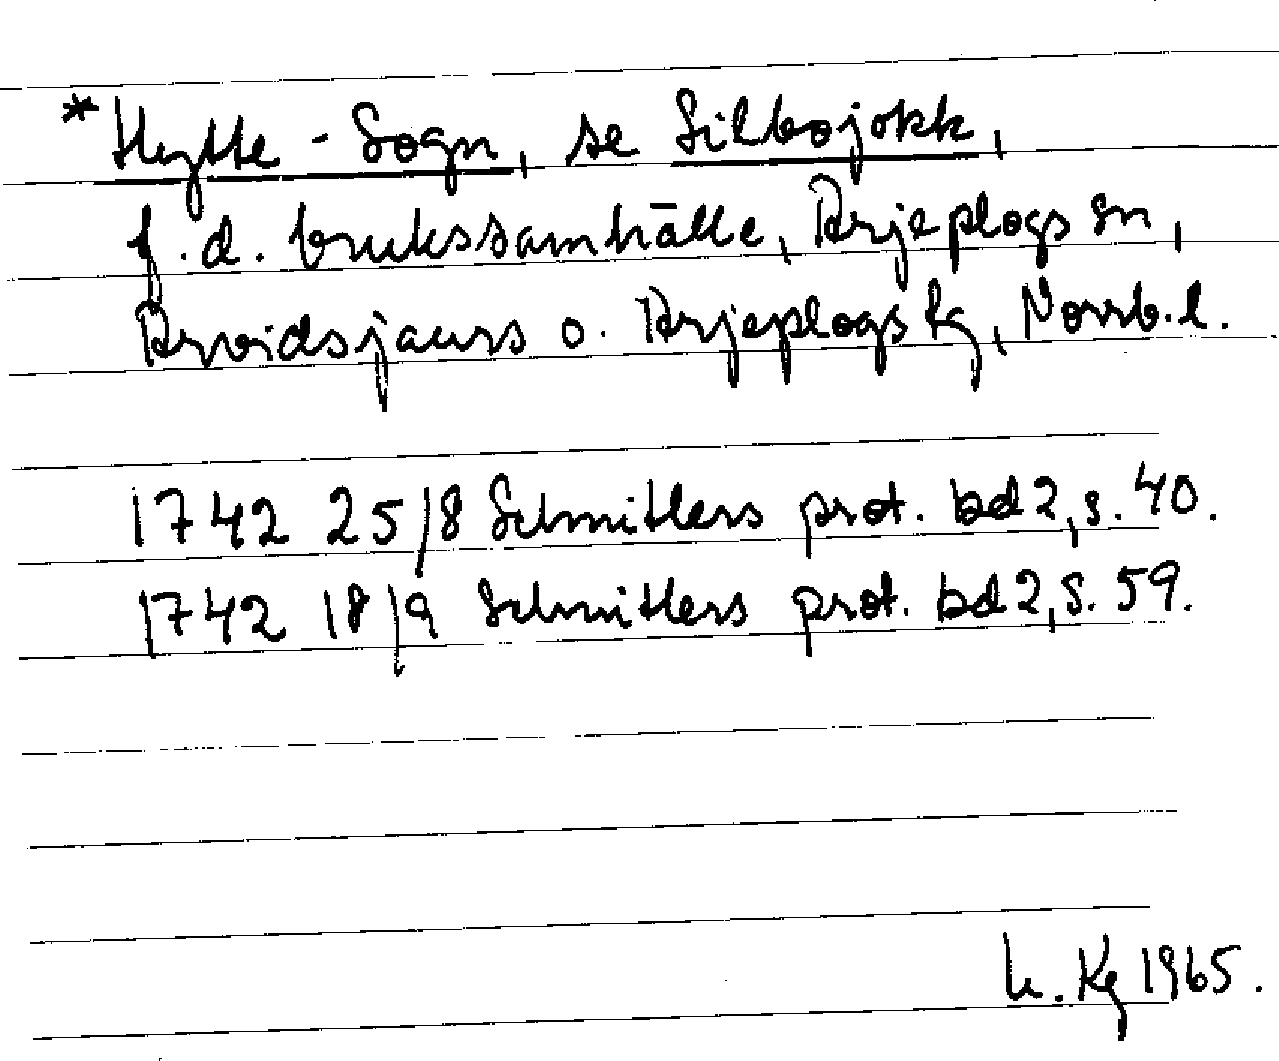 * Hytte-Sogn, se Silbojokk,
f.d. brukssamhälle, Arjeplogs sn,
Arvidsjaurs o. Arjeplogs tg, Norrb.l.
1742 25/8 Schnitlers prot. bd 2, s. 40.
1742 18/9 Schnitlers prot. bd 2, S. 59.
Kg 1965.